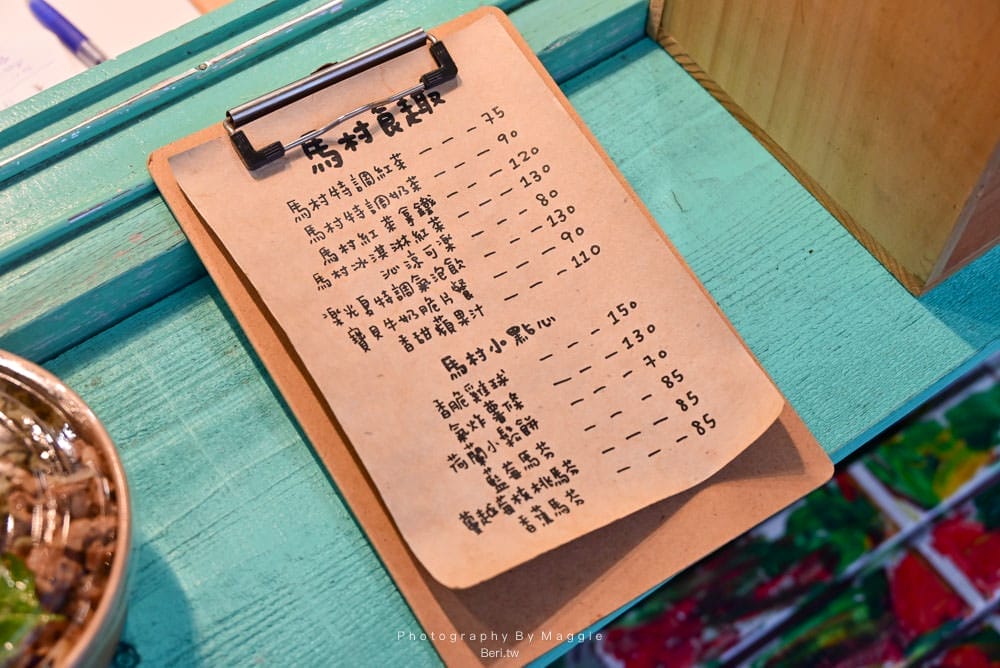 馬村食趣
馬村特調紅茶 --- 75
馬村特調奶茶 --- 90
馬村紅茶拿鐵 --- 120
馬村冰淇淋紅茶 --- 130
沁涼可樂 --- 80
樂光夏特調氣泡飲 --- 130
寶貝牛奶脆片餐 --- 90
香甜蘋果汁 --- 110
馬村小點心
香脆雞球 --- 150
氣炸薯條 --- 130
荷蘭小鬆餅 --- 70
藍莓馬芬 --- 85
蔓越莓核桃馬芬 --- 85
香蕉馬芬 --- 85
Photography By Maggie
Beri.tw